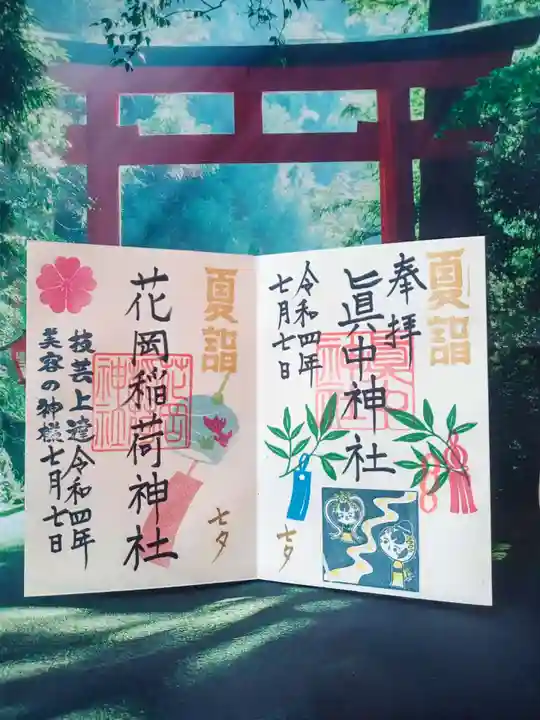 夏詣
奉拝
眞中神社
令和四年
七月七日
七夕
夏詣
花岡稲荷神社
七夕
技芸上達
美容の神様
令和四年
七月七日
花岡
稲荷
神社